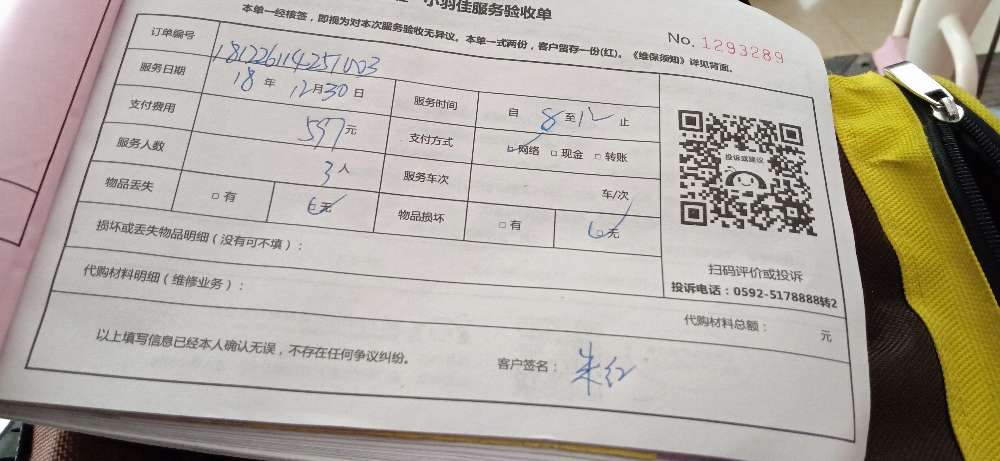 小羽佳服务验收单
本单一经接签，即视为对本次服务验收无异议。本单一式两份，客户留存一份(红)。《维保须知》详见背面。
No. 1293289
订单编号 181226114251003
服务日期 18 年 12 月 30 日 服务时间 自 8 至 12 止
支付费用 597 元 支付方式 ☑网络 □现金 □转账
服务人数 3 人 服务车次 车/次
物品丢失 □有 ☑无 物品损坏 □有 ☑无
投诉或建议
扫码评价或投诉
投诉电话：0592-5178888转2
损坏或丢失物品明细（没有可不填）：
代购材料明细（维修业务）：
代购材料总额： 元
以上填写信息已经本人确认无误，不存在任何争议纠纷。
客户签名： 朱红